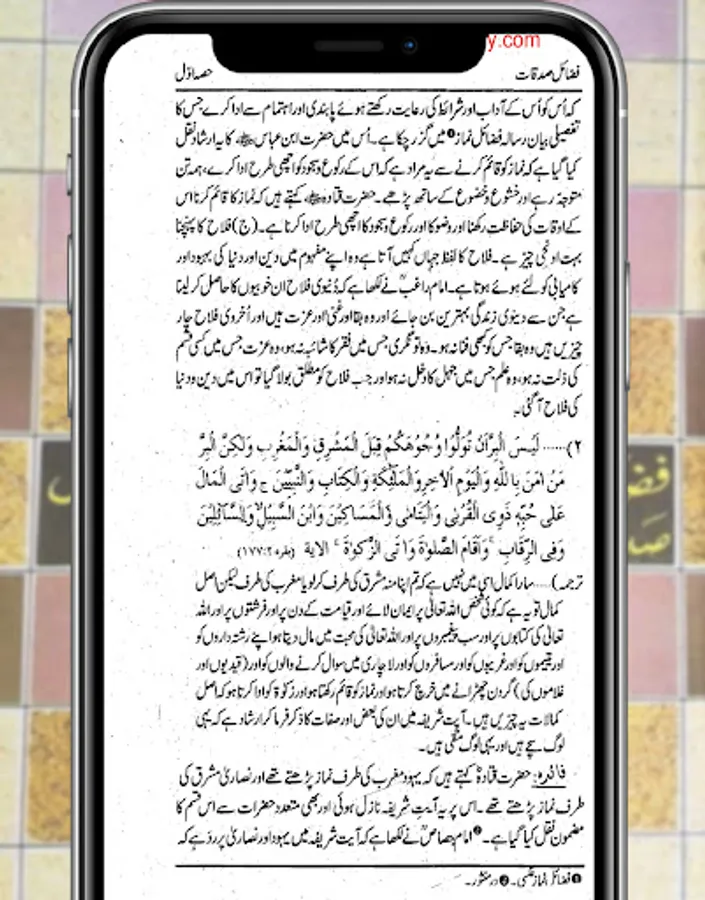 y.com
فضائل صدقات حصہ اوّل
کہ اُس کو اُس کے آداب اور شرائط کی رعایت رکھتے ہوئے پابندی اور اہتمام سے ادا کرے جس کا
تفصیلی بیان رسالہ فضائل نماز❶ میں گزر چکا ہے۔ اُس میں حضرت ابن عباس کا یہ ارشاد نقل
کیا گیا ہے کہ نماز کو قائم کرنے سے یہ مراد ہے کہ اس کے رکوع و سجود کو اچھی طرح ادا کرے، ہمہ تن
متوجہ رہے اور خشوع و خضوع کے ساتھ پڑھے۔ حضرت قتادہ کہتے ہیں کہ نماز کا قائم کرنا اس
کے اوقات کی حفاظت رکھنا اور وضو کا اور رکوع و سجود کا اچھی طرح ادا کرنا ہے۔ (ج) فلاح کا پہنچنا
بہت اونچی چیز ہے۔ فلاح کا لفظ جہاں کہیں آتا ہے وہ اپنے مفہوم میں دین اور دنیا کی بہبود اور
کامیابی کو لئے ہوئے ہوتا ہے۔ امام راغبؒ نے لکھا ہے کہ دُنیوی فلاح ان خوبیوں کا حاصل کر لینا
ہے جن سے دینوی زندگی بہترین بن جائے اور وہ بقا اور غنیٰ اور عزت ہیں اور اُخروی فلاح چار
چیزیں ہیں وہ بقا جس کو کبھی فنا نہ ہو۔ وہ تونگری جس میں فقر کا شائبہ نہ ہو، وہ عزت جس میں کسی قسم
کی ذلت نہ ہو، وہ علم جس میں جہل کا دخل نہ ہو اور جب فلاح کو مطلق بولا گیا تو اس میں دین و دنیا
کی فلاح آگئی۔
۲)...... لَيْسَ الْبِرَّ اَنْ تُوَلُّوْا وُجُوْهَكُمْ قِبَلَ الْمَشْرِقِ وَالْمَغْرِبِ وَلٰكِنَّ الْبِرَّ
مَنْ اٰمَنَ بِاللّٰهِ وَالْيَوْمِ الْاٰخِرِ وَالْمَلٰٓئِكَةِ وَالْكِتَابِ وَالنَّبِيّٖنَ ج وَاٰتَى الْمَالَ
عَلٰى حُبِّهٖ ذَوِى الْقُرْبٰى وَالْيَتَامٰى وَالْمَسَاكِيْنَ وَابْنَ السَّبِيْلِ وَالسَّآئِلِيْنَ
وَفِى الرِّقَابِ ج وَاَقَامَ الصَّلٰوةَ وَاٰتَى الزَّكٰوةَ ج الاية (بقرہ ۲:۱۷۷)
ترجمہ)..... سارا کمال اسی میں نہیں ہے کہ تم اپنا منہ مشرق کی طرف کر لو یا مغرب کی طرف لیکن اصل
کمال تو یہ ہے کہ کوئی شخص اللہ تعالیٰ پر ایمان لائے اور قیامت کے دن پر اور فرشتوں پر اور اللہ
تعالیٰ کی کتابوں پر اور سب پیغمبروں پر اور اللہ تعالیٰ کی محبت میں مال دیتا ہو اپنے رشتہ داروں کو
اور یتیموں کو اور غریبوں کو اور مسافروں کو اور لاچاری میں سوال کرنے والوں کو اور (قیدیوں اور
غلاموں کی) گردن چھڑانے میں خرچ کرتا ہو اور نماز کو قائم رکھتا ہو اور زکوٰۃ کو ادا کرتا ہو کہ اصل
کمالات یہ چیزیں ہیں۔ آیت شریفہ میں ان کی بعض اور صفات کا ذکر فرما کر ارشاد ہے کہ یہی
لوگ سچے ہیں اور یہی لوگ متقی ہیں۔
فائدہ: حضرت قتادہؒ کہتے ہیں کہ یہود مغرب کی طرف نماز پڑھتے تھے اور نصاریٰ مشرق کی
طرف نماز پڑھتے تھے۔ اس پر یہ آیتِ شریفہ نازل ہوئی اور بھی متعدد حضرات سے اس قسم کا
مضمون نقل کیا گیا ہے۔❷ امام جصاصؒ نے لکھا ہے کہ آیت شریفہ میں یہود اور نصاریٰ پر رد ہے کہ
❶ فضائل نماز ۔ ❷ درمنثور۔